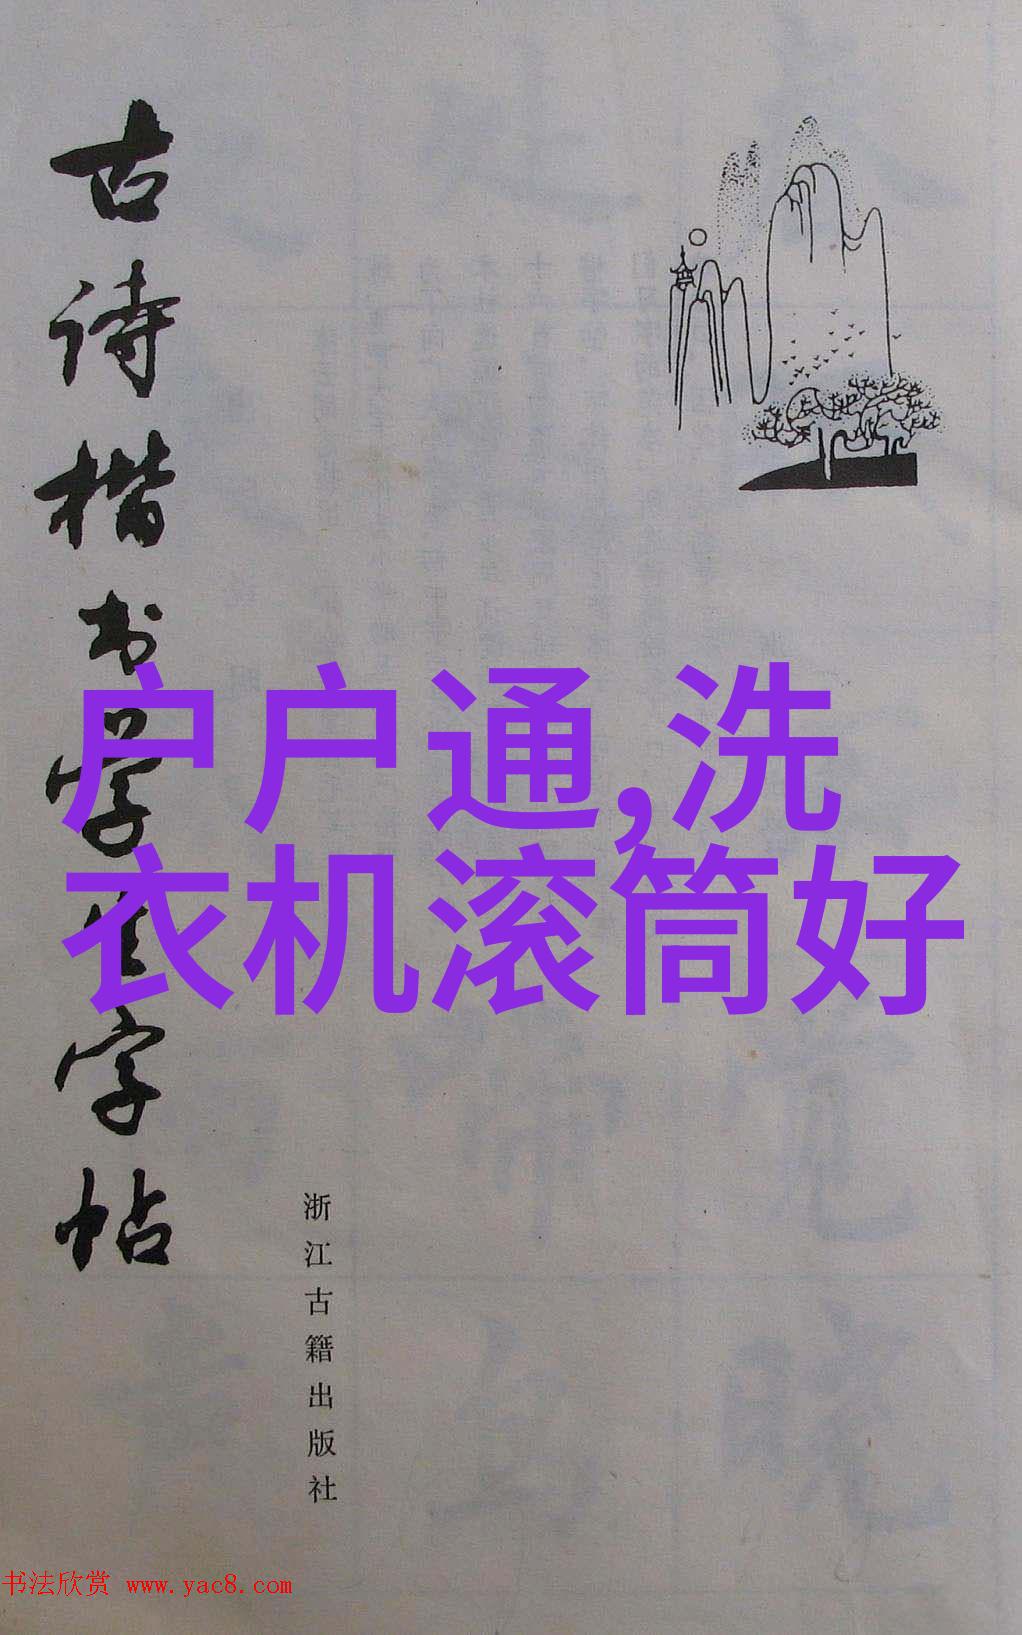 古诗楷书学生字帖
户户通,洗
衣机滚筒好
浙江古籍出版社
书法欣赏 www.yac8.com